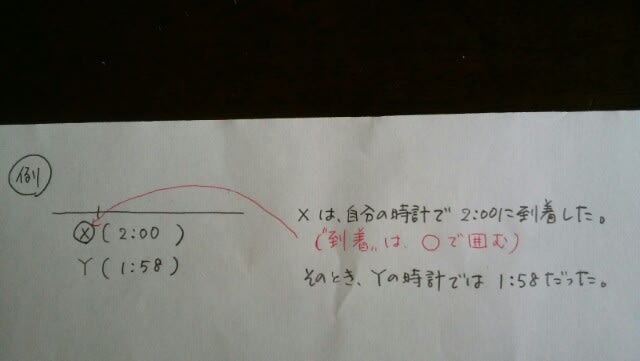 例
X は、自分の時計で 2:00に到着した。
Ⓧ ( 2:00 )
("到着"は、○で囲む)
Y ( 1:58 )
そのとき、Yの時計では 1:58だった。